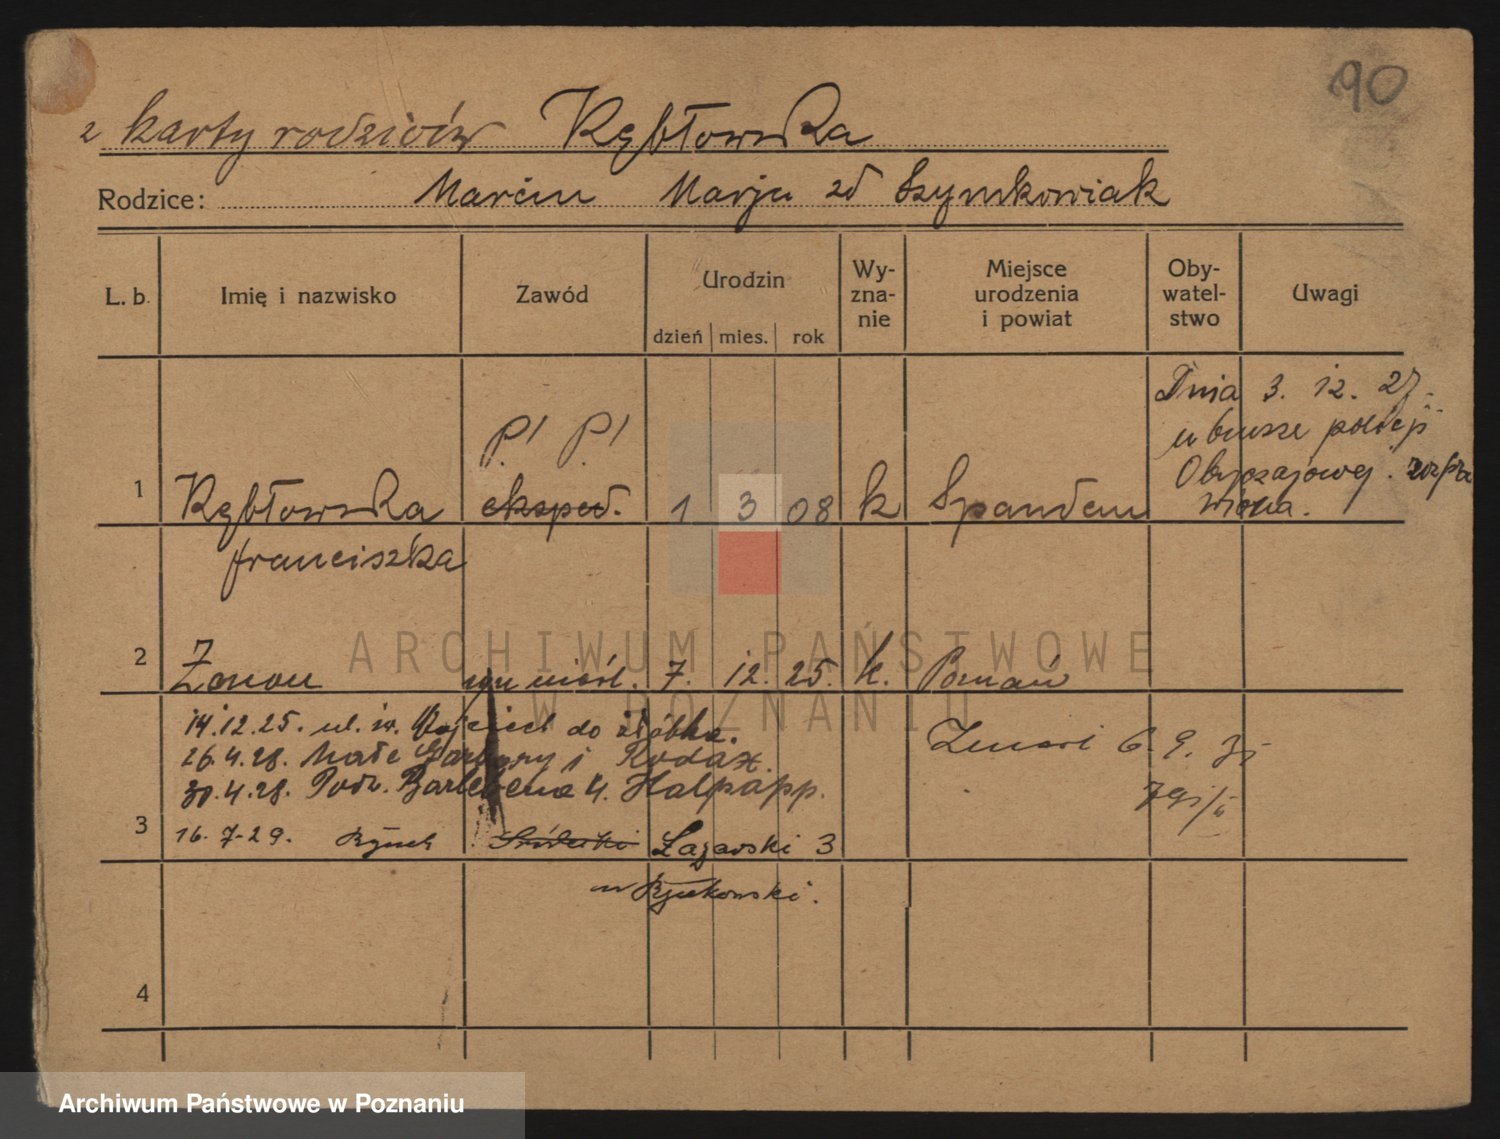 90
z karty rodziców Kębłowska
Rodzice: Marcin Marja zd Szymkowiak
L. b. Imię i nazwisko Zawód Urodzin dzień mies. rok Wy-zna-nie Miejsce urodzenia i powiat Oby-watel-stwo Uwagi
Dnia 3. 12. 27.
w biurze policji
Obyczajowej
P! P!
1 Kębłowska eksped. 1 3 08 k Spandau
Franciszka
2 Zenon 7. 12. 25. k. Poznań
14.12.25. ul. św. Wojciech do żłóbka.
26.4.28. Małe Garbary 1
30.4.28. Podw. 4. Halpapp.
Zmarł 6. 9.
3 16.7-29. Rynek Śródecki Łazarski 3
4
ARCHIWUM PAŃSTWOWE
W POZNANIU
Archiwum Państwowe w Poznaniu